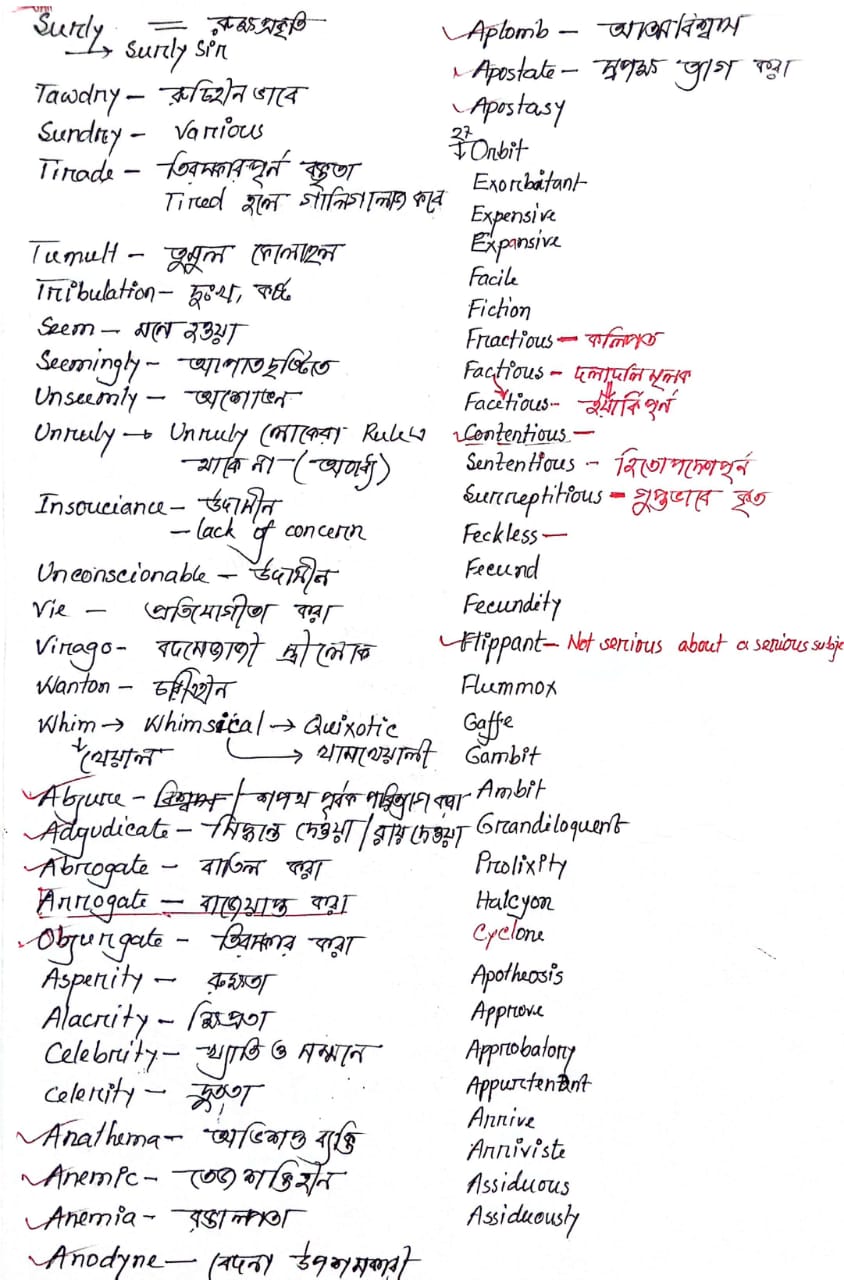 Surly = রুক্ষপ্রকৃতি
→ Surly Sir
Tawdry – রুচিহীন ভাবে
Sundry – various
Tirade – তিরস্কারপূর্ন বক্তৃতা
Tired হলে গালিগালাজ করে
Tumult – তুমুল কোলাহল
Tribulation – দুঃখ, কষ্ট
Seem – মনে হওয়া
Seemingly – আপাতদৃষ্টিতে
Unseemly – অশোভন
Unruly → Unruly লোকেরা Rules
থাকে না – (অবাধ্য)
Insouciance – উদাসীন
– lack of concern
Unconscionable – উদাসীন
Vie – প্রতিযোগীতা করা
Virago – বদমেজাজী স্ত্রীলোক
Wanton – চরিত্রহীন
Whim → Whimsical → Quixotic
খেয়াল → খামখেয়ালী
Abjure – বিশ্বাস / শপথ পূর্বক পরিত্যাগ করা
Adjudicate – সিদ্ধান্ত দেওয়া / রায় দেওয়া
Abrogate – বাতিল করা
Arrogate – বাজেয়াপ্ত করা
Objurgate – তিরস্কার করা
Asperity – রুক্ষতা
Alacrity – ক্ষিপ্রতা
Celebrity – খ্যাতি ও সম্মান
Celerity – দ্রুততা
Anathema – অভিশপ্ত ব্যক্তি
Anemic – তেজ শক্তিহীন
Anemia – রক্তাল্পতা
Anodyne – বেদনা উপশমকারী
Aplomb – আত্মবিশ্বাস
Apostate – স্বপক্ষ ত্যাগ করা
Apostasy
27
↓ Orbit
Exorbitant
Expensive
Expansive
Facile
Fiction
Fractious – কলহপ্রিয়
Factious – দলাদলি মূলক
Facetious – ইয়ার্কি পূর্ন
Contentious –
Sententious – হিতোপদেশপূর্ন
Surreptitious – গুপ্তভাবে কৃত
Feckless –
Fecund
Fecundity
Flippant – Not serious about a serious subje
Flummox
Gaffe
Gambit
Ambit
Grandiloquent
Prolixity
Halcyon
Cyclone
Apotheosis
Approve
Approbatory
Appurtenant
Arrive
Arriviste
Assiduous
Assiduously